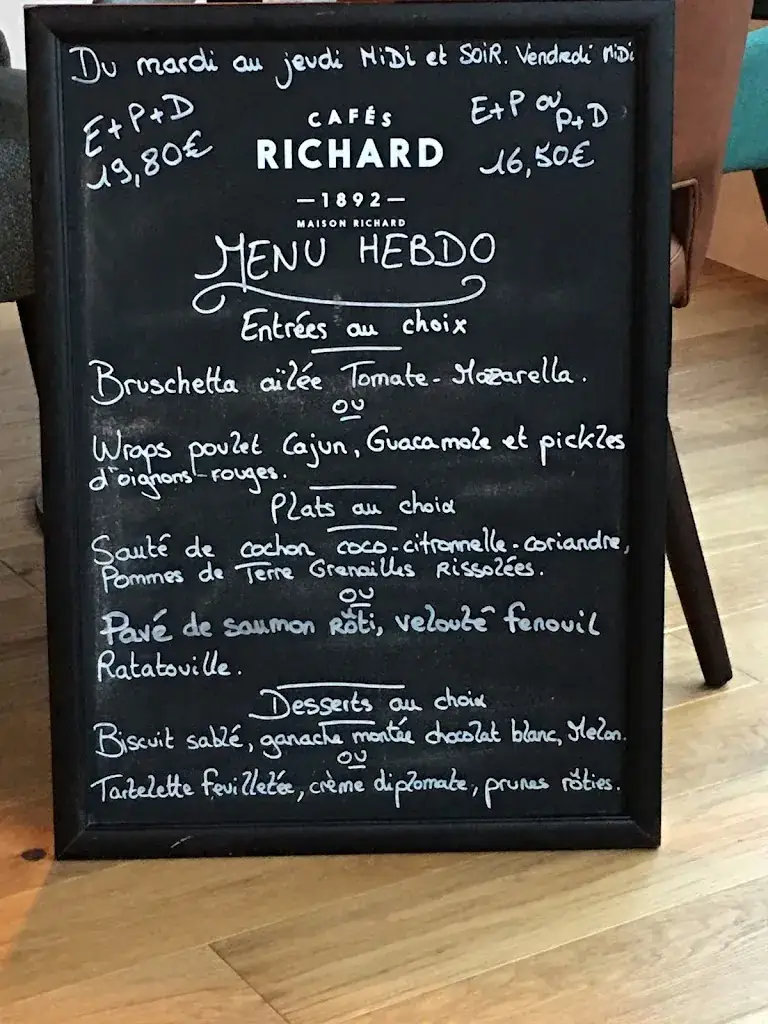 Du mardi au jeudi MiDi et SOiR. Vendredi MiDi
E+P+D
19,80€
CAFÉS
RICHARD
—1892—
MAISON RICHARD
E+P ou P+D
16,50€
MENU HEBDO
Entrées au choix
Bruschetta aïlée Tomate-Mozarella.
OU
Wraps poulet Cajun, Guacamole et pickles
d'oignons rouges.
Plats au choix
Sauté de cochon coco-citronnelle-coriandre,
Pommes de Terre Grenailles Rissolées.
OU
Pavé de saumon Rôti, velouté fenouil
Ratatouille.
Desserts au choix
Biscuit sablé, ganache montée chocolat blanc, Melon.
OU
Tartelette feuilletée, crème diplomate, prunes rôties.